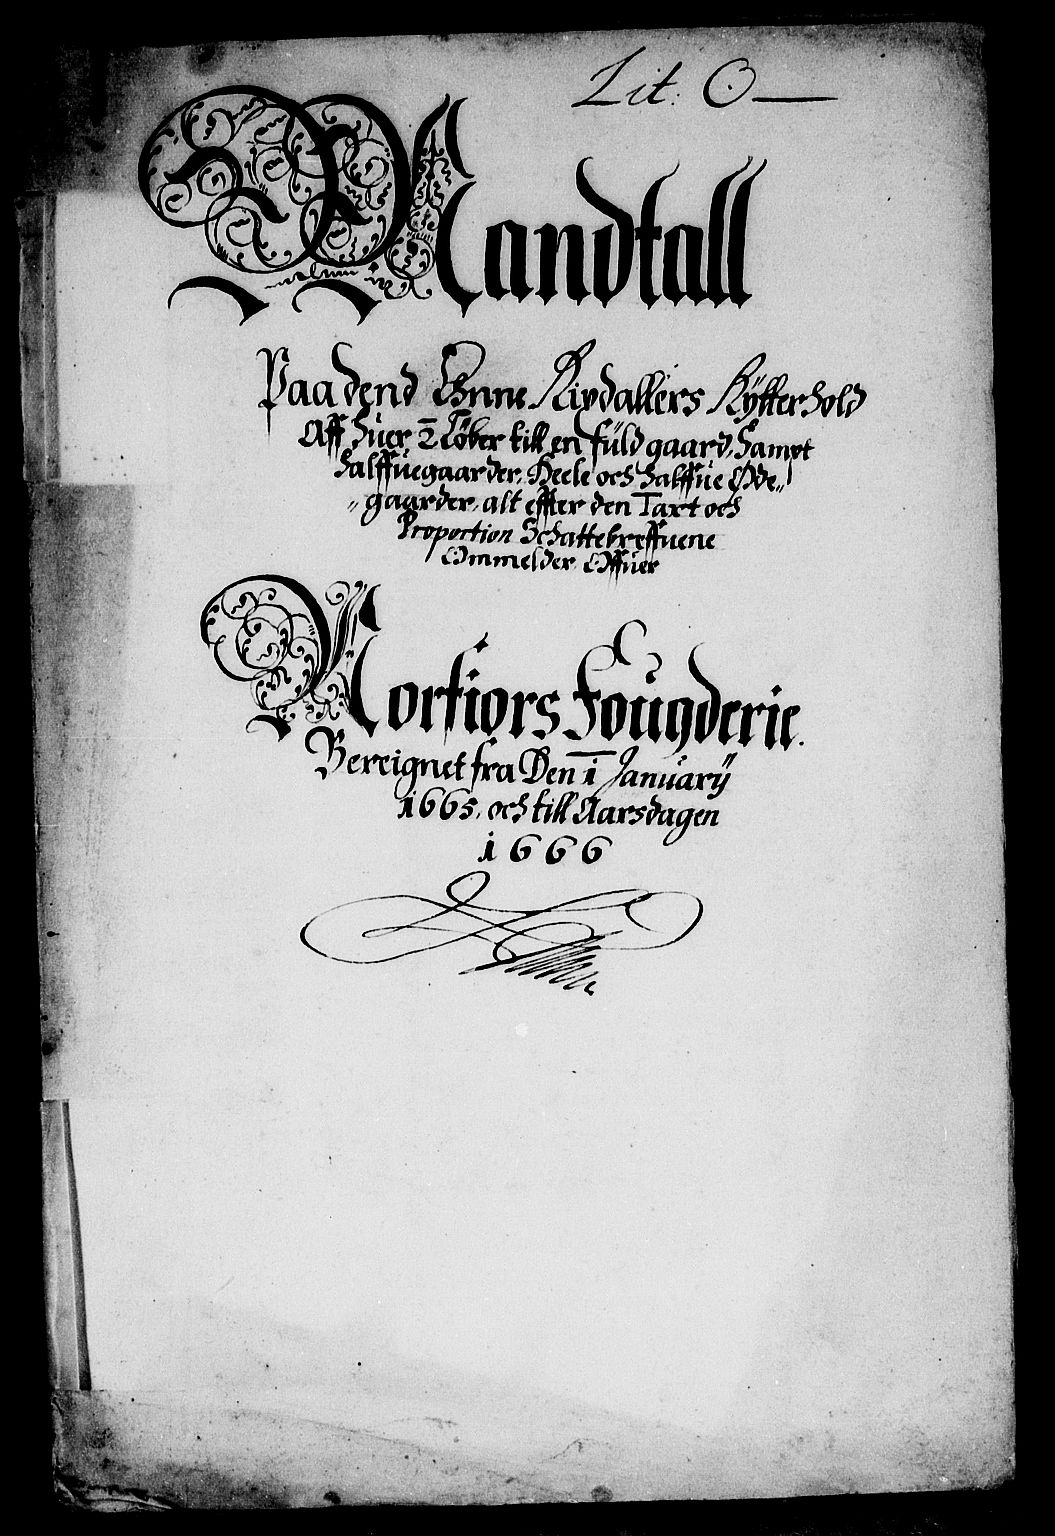 Lit: O
Mandtall
Paa dend Enne Rixdallers Rytterhold
Aff huer 2 Løber till en füld gaard, sampt
halffuegaarder, Heele och halffue Øde„
„gaarder, alt effter den Taxt och
Proportion Schattebreffuene
Ommelder Offuer
Norfiors Fougderie.
Bereignet fra Den 1 January
1665, och till Aarsdagen
1666